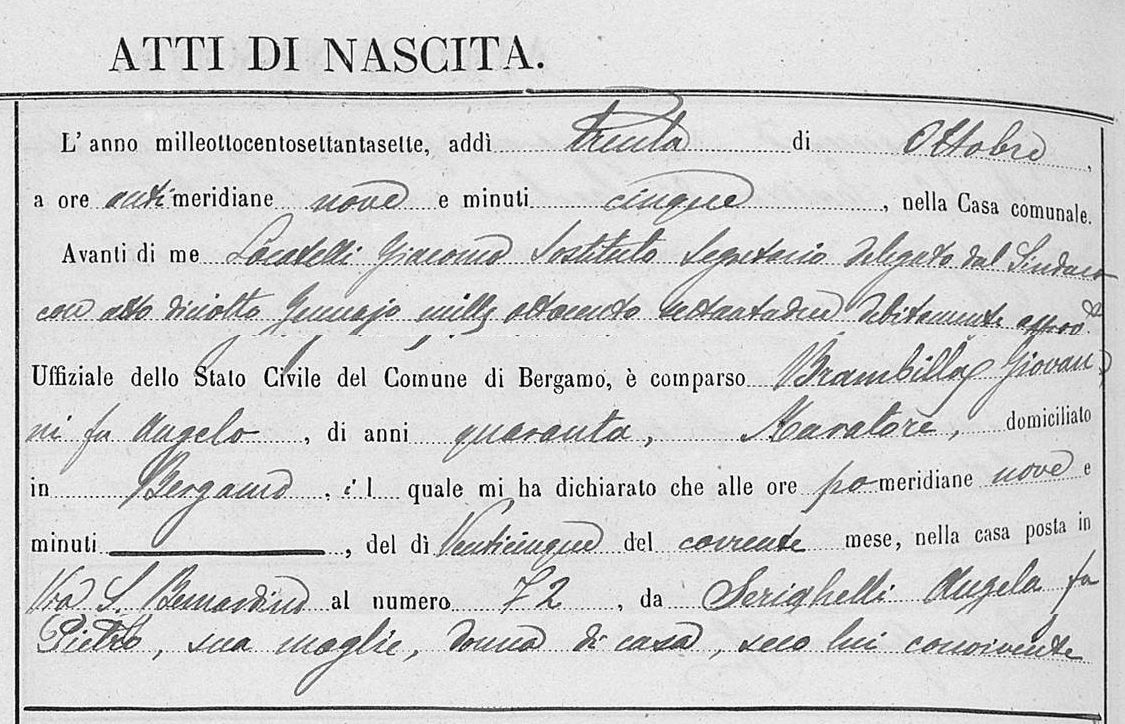 ATTI DI NASCITA.
L' anno milleottocentosettantasette, addì trenta di Ottobre,
a ore antimeridiane nove e minuti cinque, nella Casa comunale.
Avanti di me Locatelli Giacomo Sostituto Segretario delegato dal Sindaco
con atto diciotto Gennajo mille ottocento settantadue debitamente approvto
Uffiziale dello Stato Civile del Comune di Bergamo, è comparso Brambilla Giovan-
ni fu Angelo, di anni quaranta, domiciliato
in Bergamo, il quale mi ha dichiarato che alle ore pomeridiane nove e
minuti, del dì Venticinque del corrente mese, nella casa posta in
Via S. Bernardino al numero 72, da Serighelli Angela fu
Pietro, sua moglie, donna di casa, seco lui convivente